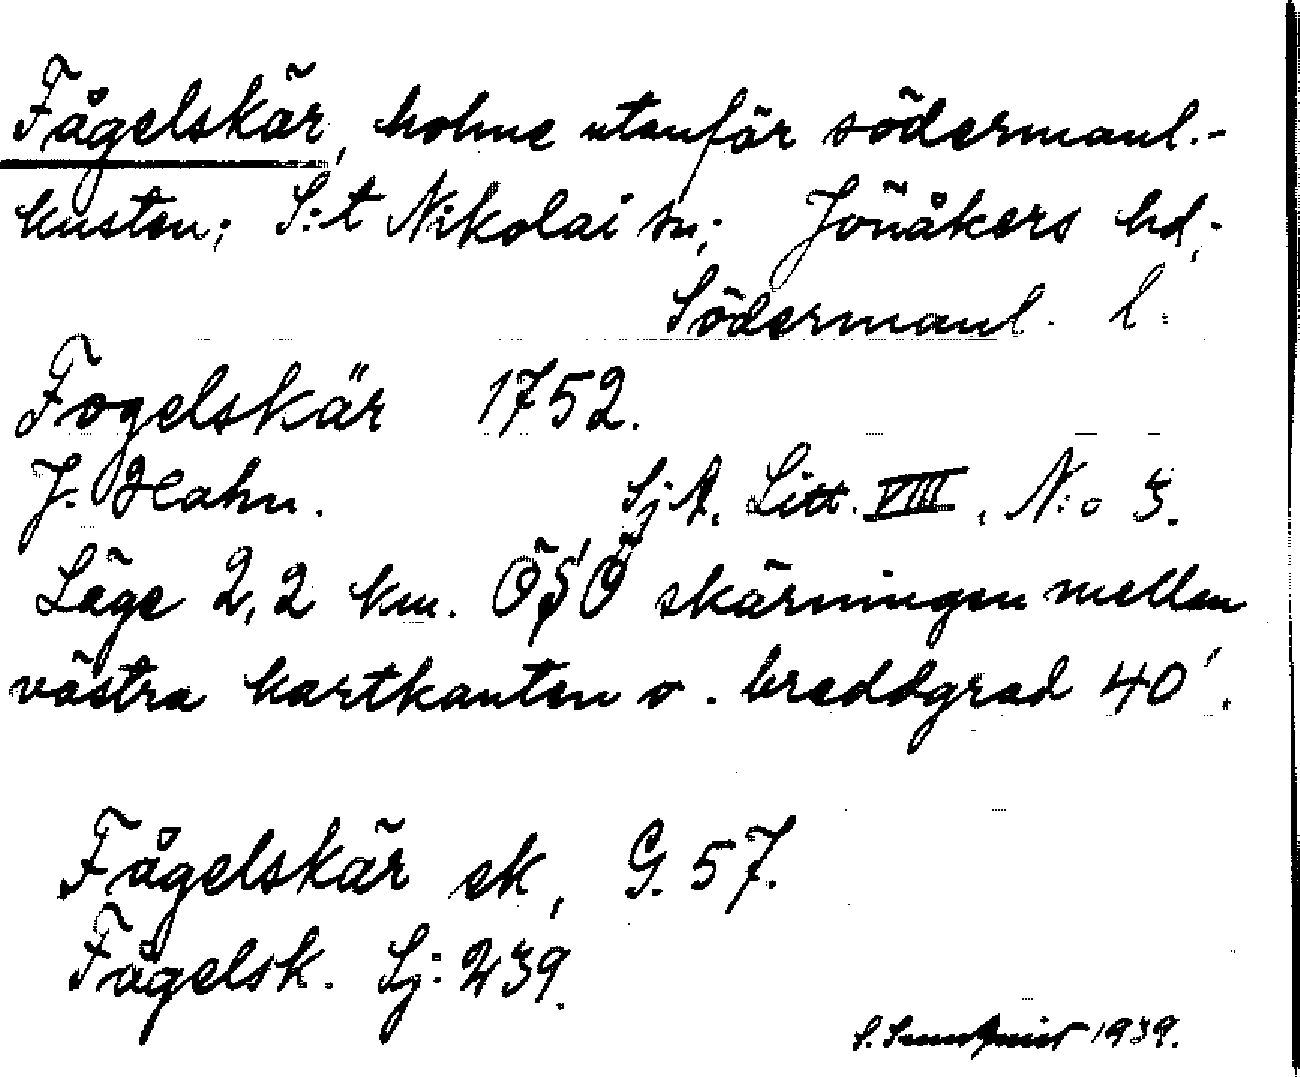 Fågelskär, holme utanför södermanl.-
kusten; S:t Nikolai sn; Jönåkers hd,-
Södermanl. l.
Fogelskär 1752.
J. Hahn. SjA. Litt. VIII, N:o 3.
Läge 2,2 km. ÖSÖ skärningen mellan
västra kartkanten o. breddgrad 40'.
Fågelskär ek, G. 57.
Fågelsk. Sj: 239.
S. 1939.